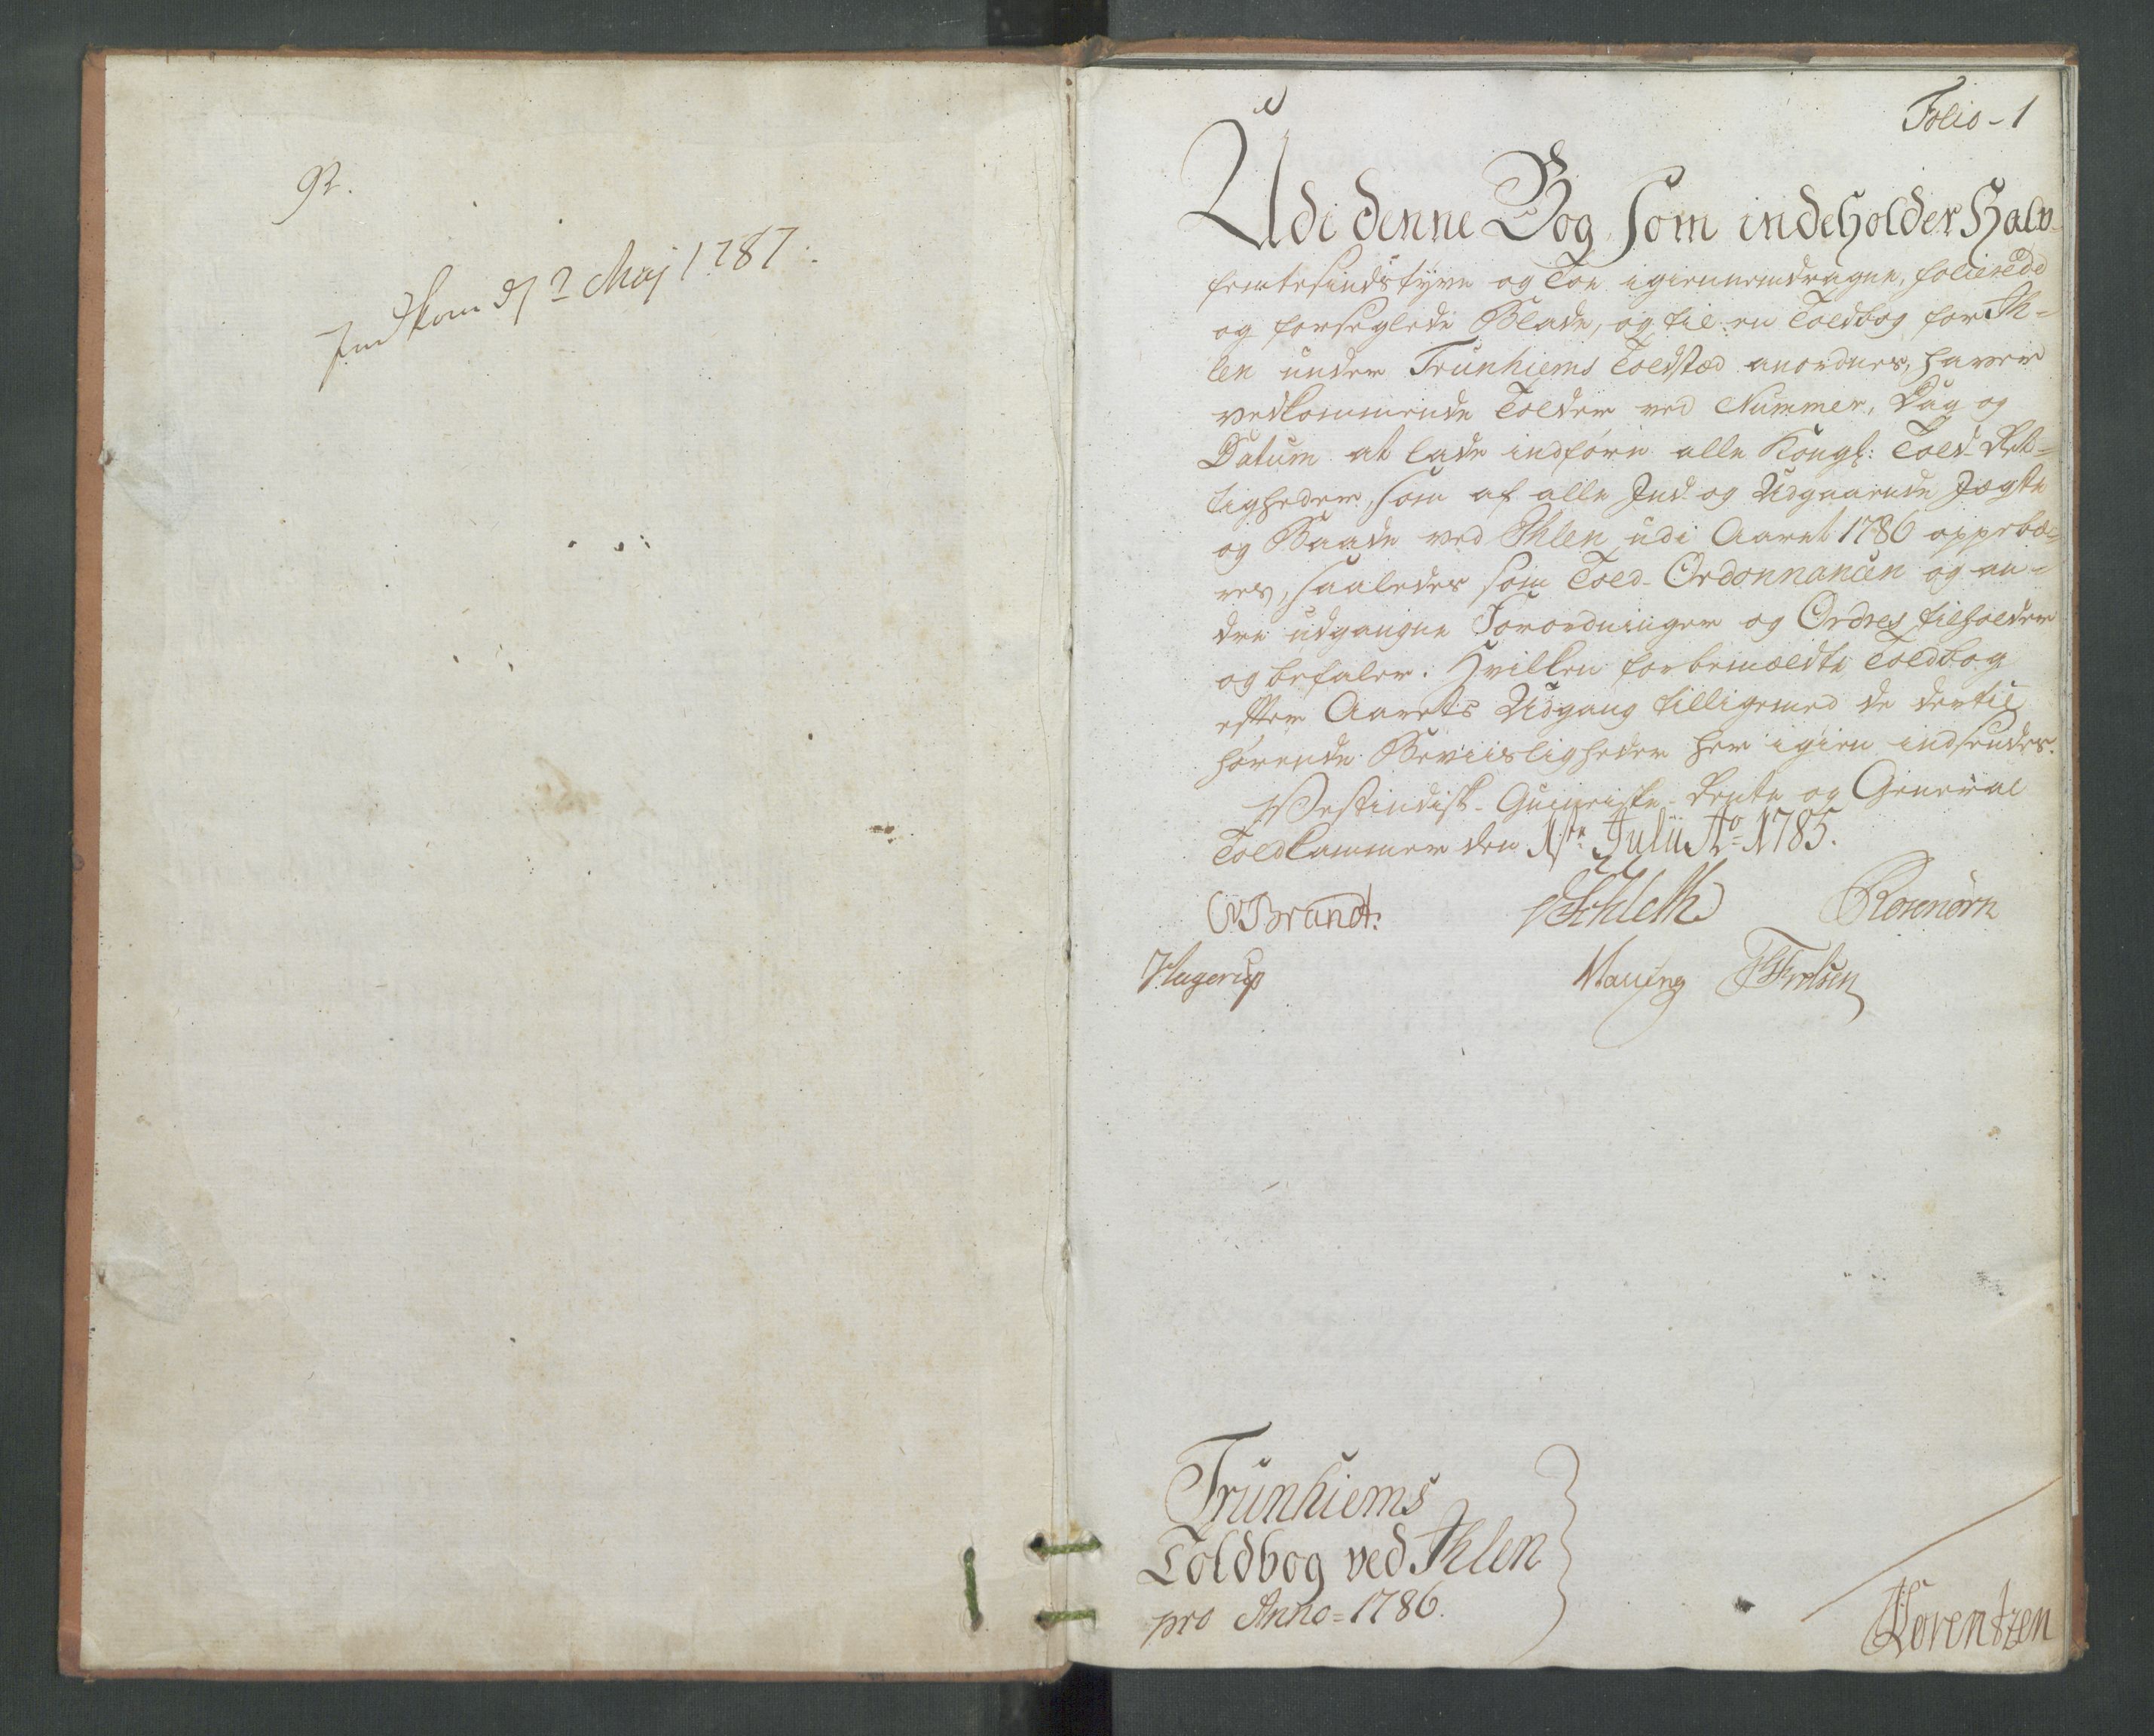 92.
Indkom d 2 Maj 1787.
Folio-1
Udi denne Bog, som indeholder Halv-
femtesindstyve og Toe igiennemdragne, folierede
og forseglede Blade, og til en Toldbog for Ih-
len under Trunhiems Toldsted anordnes, haver
vedkommende Tolder ved Nummer, Dag og
Datum at lade indføre alle Kongl: Told-Ret-
tigheder, som af alle Ind- og Udgaaende Jægte
og Baade ved Ihlen udi Aaret 1786 oppebæ-
res, saaledes som Told-Ordonnancen og an-
dre udgangne Forordninger og Ordres tilholder
og befaler. Hvilken forbemældte Toldbog
efter Aarets Udgang tilligemed de dertil
hørende Beviisligheder her igien indsendes.
Vestindisk-Guineiske Rente og General
Toldkammer den 1ste Julii Ao 1785.
CVBrandt. Schleth Rosenørn
Hagerup Mauing Frelsen
Trunhiems
Toldbog ved Ihlen
pro Anno=1786.
Lorentzen